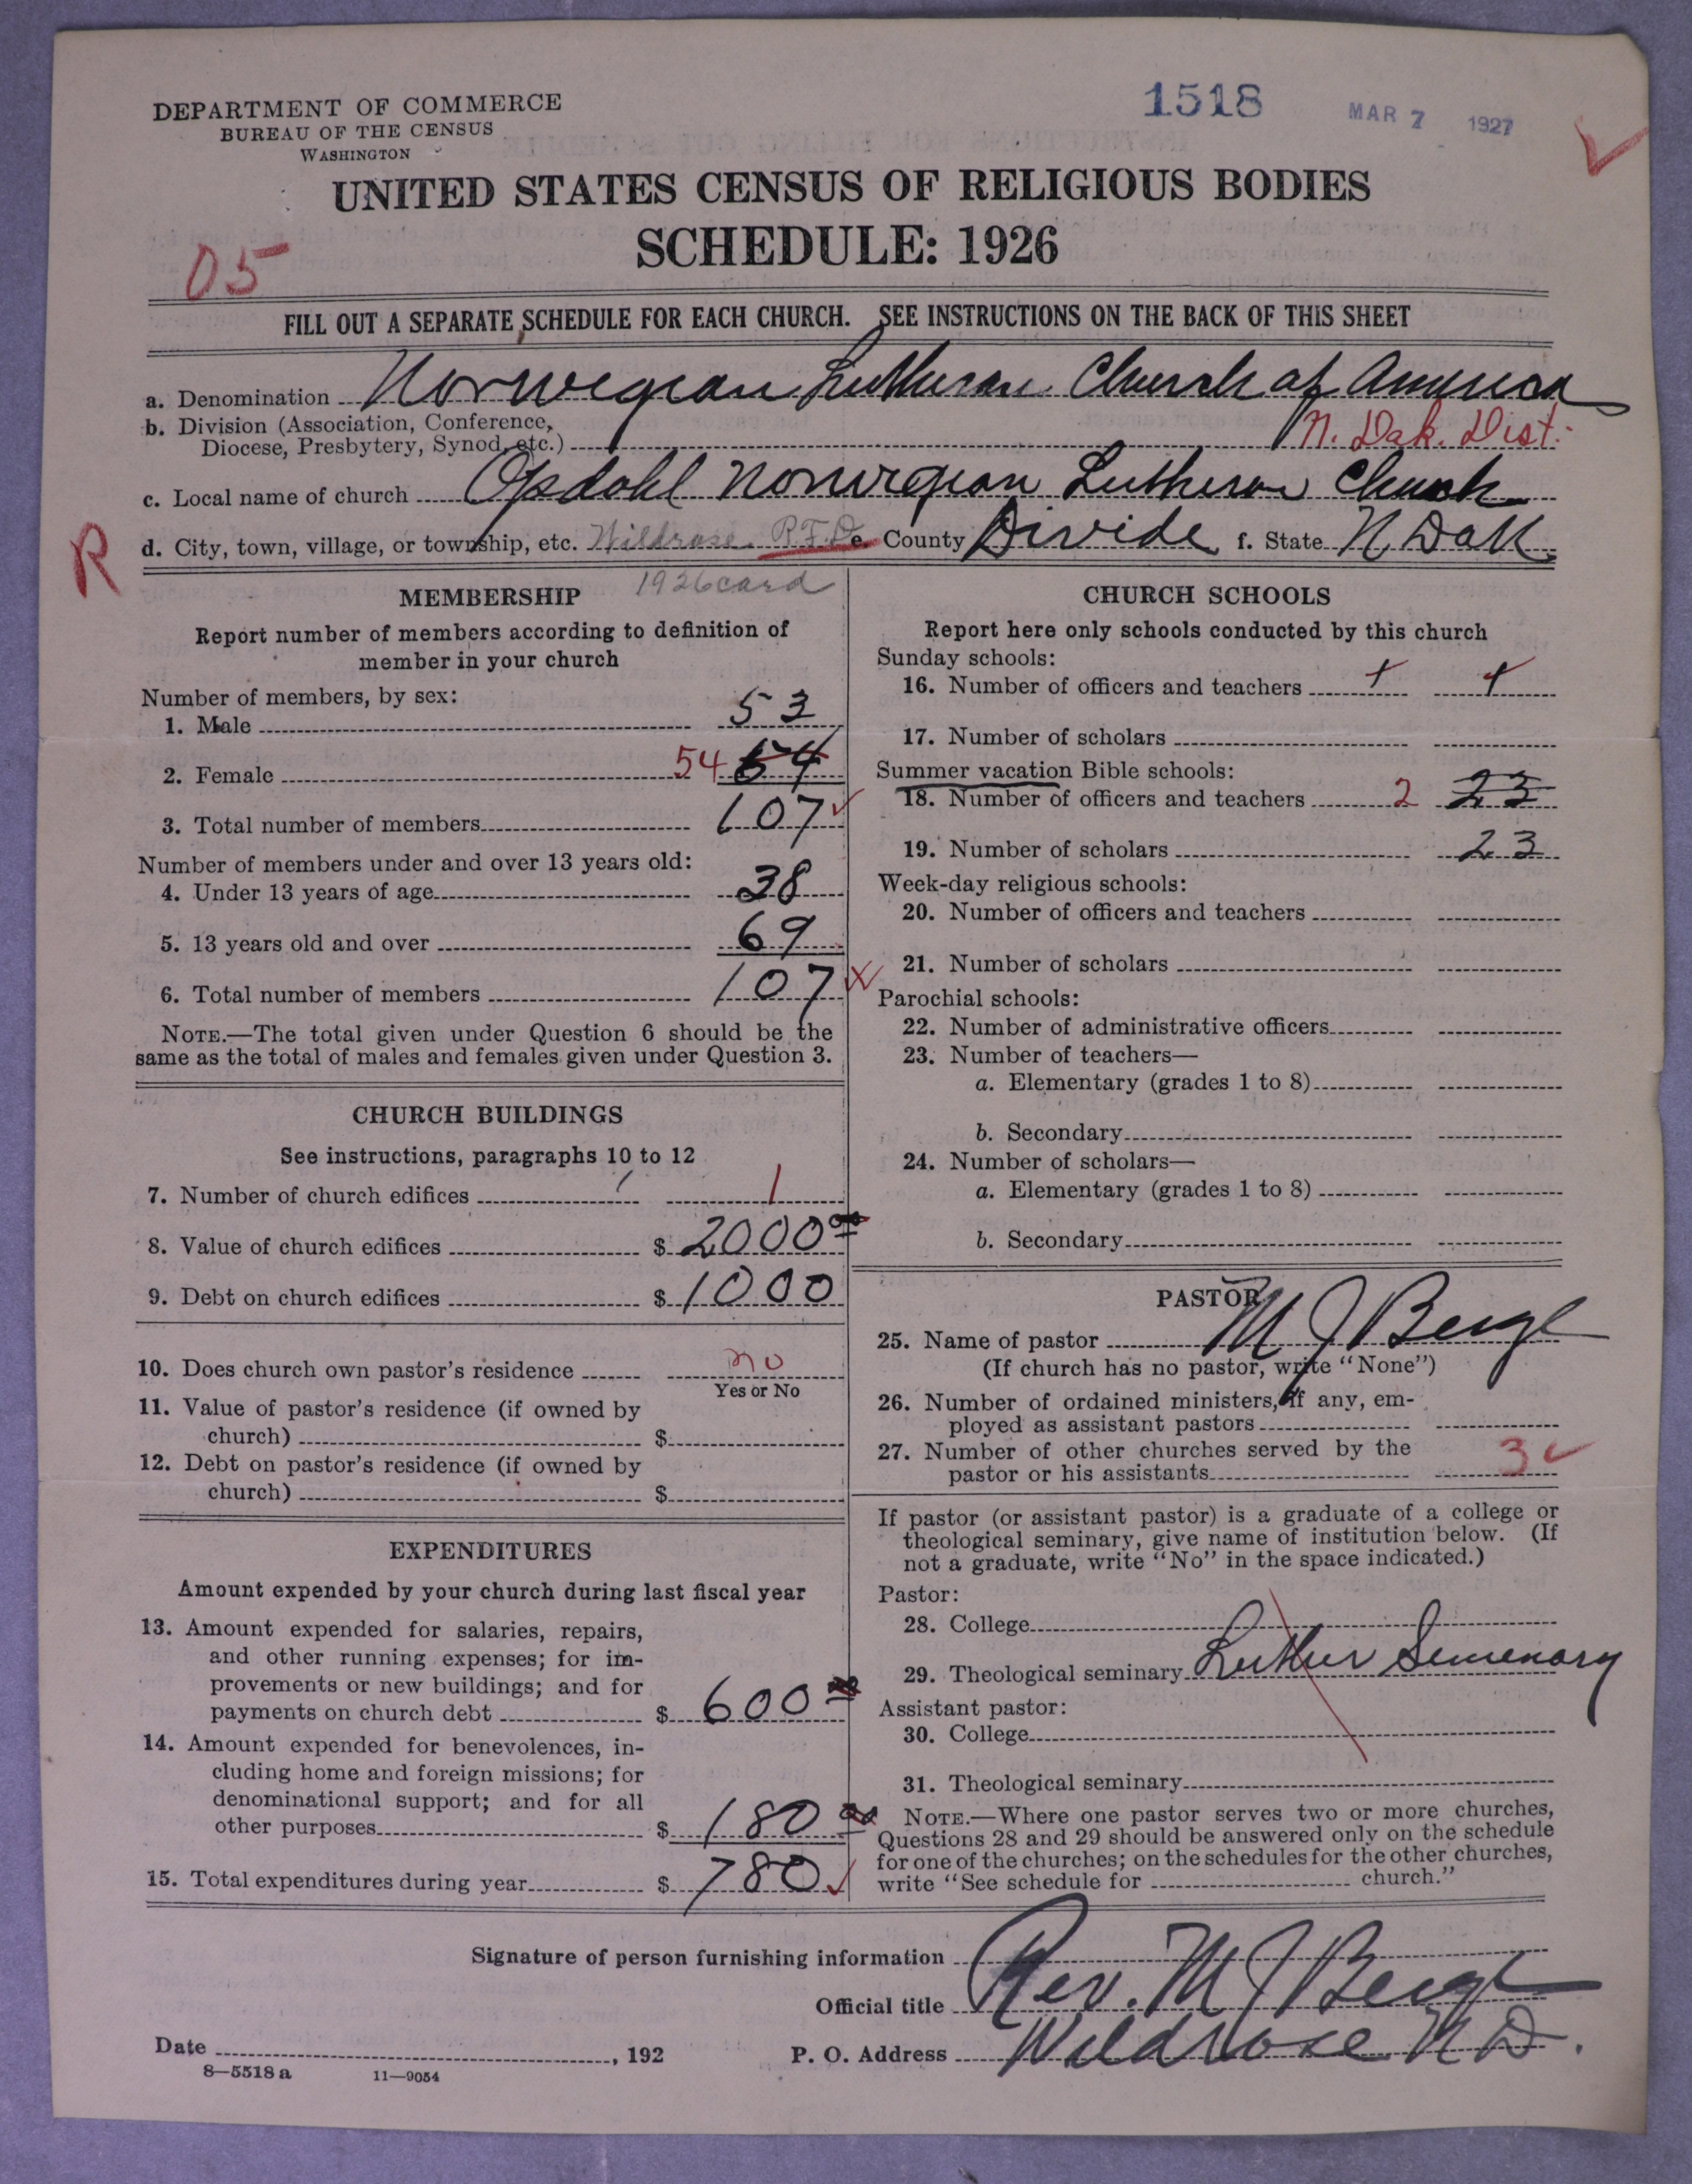 DEPARTMENT OF COMMERCE
BUREAU OF THE CENSUS
WASHINGTON
1518
MAR 7 1927
UNITED STATES CENSUS OF RELIGIOUS BODIES
SCHEDULE: 1926
05
FILL OUT A SEPARATE SCHEDULE FOR EACH CHURCH. SEE INSTRUCTIONS ON THE BACK OF THIS SHEET
a. Denomination Norwegian Lutheran Church of America
b. Division (Association, Conference,
Diocese, Presbytery, Synod, etc.) N. Dak. Dist.
c. Local name of church Opdahl Norwegian Lutheran Church
R
d. City, town, village, or township, etc. Wildrose R.F.D. e. County Divide f. State N. Dak.
1926 card
MEMBERSHIP
Report number of members according to definition of
member in your church
Number of members, by sex:
1. Male 53
2. Female 54 64
3. Total number of members 107
Number of members under and over 13 years old:
4. Under 13 years of age 38
5. 13 years old and over 69
6. Total number of members 107
NOTE.—The total given under Question 6 should be the
same as the total of males and females given under Question 3.
CHURCH BUILDINGS
See instructions, paragraphs 10 to 12
7. Number of church edifices 1
8. Value of church edifices $ 2000 00
9. Debt on church edifices $ 1000
10. Does church own pastor's residence no
Yes or No
11. Value of pastor's residence (if owned by
church) $
12. Debt on pastor's residence (if owned by
church) $
EXPENDITURES
Amount expended by your church during last fiscal year
13. Amount expended for salaries, repairs,
and other running expenses; for im-
provements or new buildings; and for
payments on church debt $ 600 00
14. Amount expended for benevolences, in-
cluding home and foreign missions; for
denominational support; and for all
other purposes $ 180 00
15. Total expenditures during year $ 780
CHURCH SCHOOLS
Report here only schools conducted by this church
Sunday schools:
16. Number of officers and teachers
17. Number of scholars
Summer vacation Bible schools:
18. Number of officers and teachers 2 23
19. Number of scholars 23
Week-day religious schools:
20. Number of officers and teachers
21. Number of scholars
Parochial schools:
22. Number of administrative officers
23. Number of teachers—
a. Elementary (grades 1 to 8)
b. Secondary
24. Number of scholars—
a. Elementary (grades 1 to 8)
b. Secondary
PASTOR
25. Name of pastor M J Berge
(If church has no pastor, write "None")
26. Number of ordained ministers, if any, em-
ployed as assistant pastors
27. Number of other churches served by the
pastor or his assistants 3
If pastor (or assistant pastor) is a graduate of a college or
theological seminary, give name of institution below. (If
not a graduate, write "No" in the space indicated.)
Pastor:
28. College
29. Theological seminary Luther Semenary
Assistant pastor:
30. College
31. Theological seminary
NOTE.—Where one pastor serves two or more churches,
Questions 28 and 29 should be answered only on the schedule
for one of the churches; on the schedules for the other churches,
write "See schedule for church."
Signature of person furnishing information
Official title Rev. M J Berge
Date , 192
P. O. Address Wildrose N D.
8—5518 a 11—9054